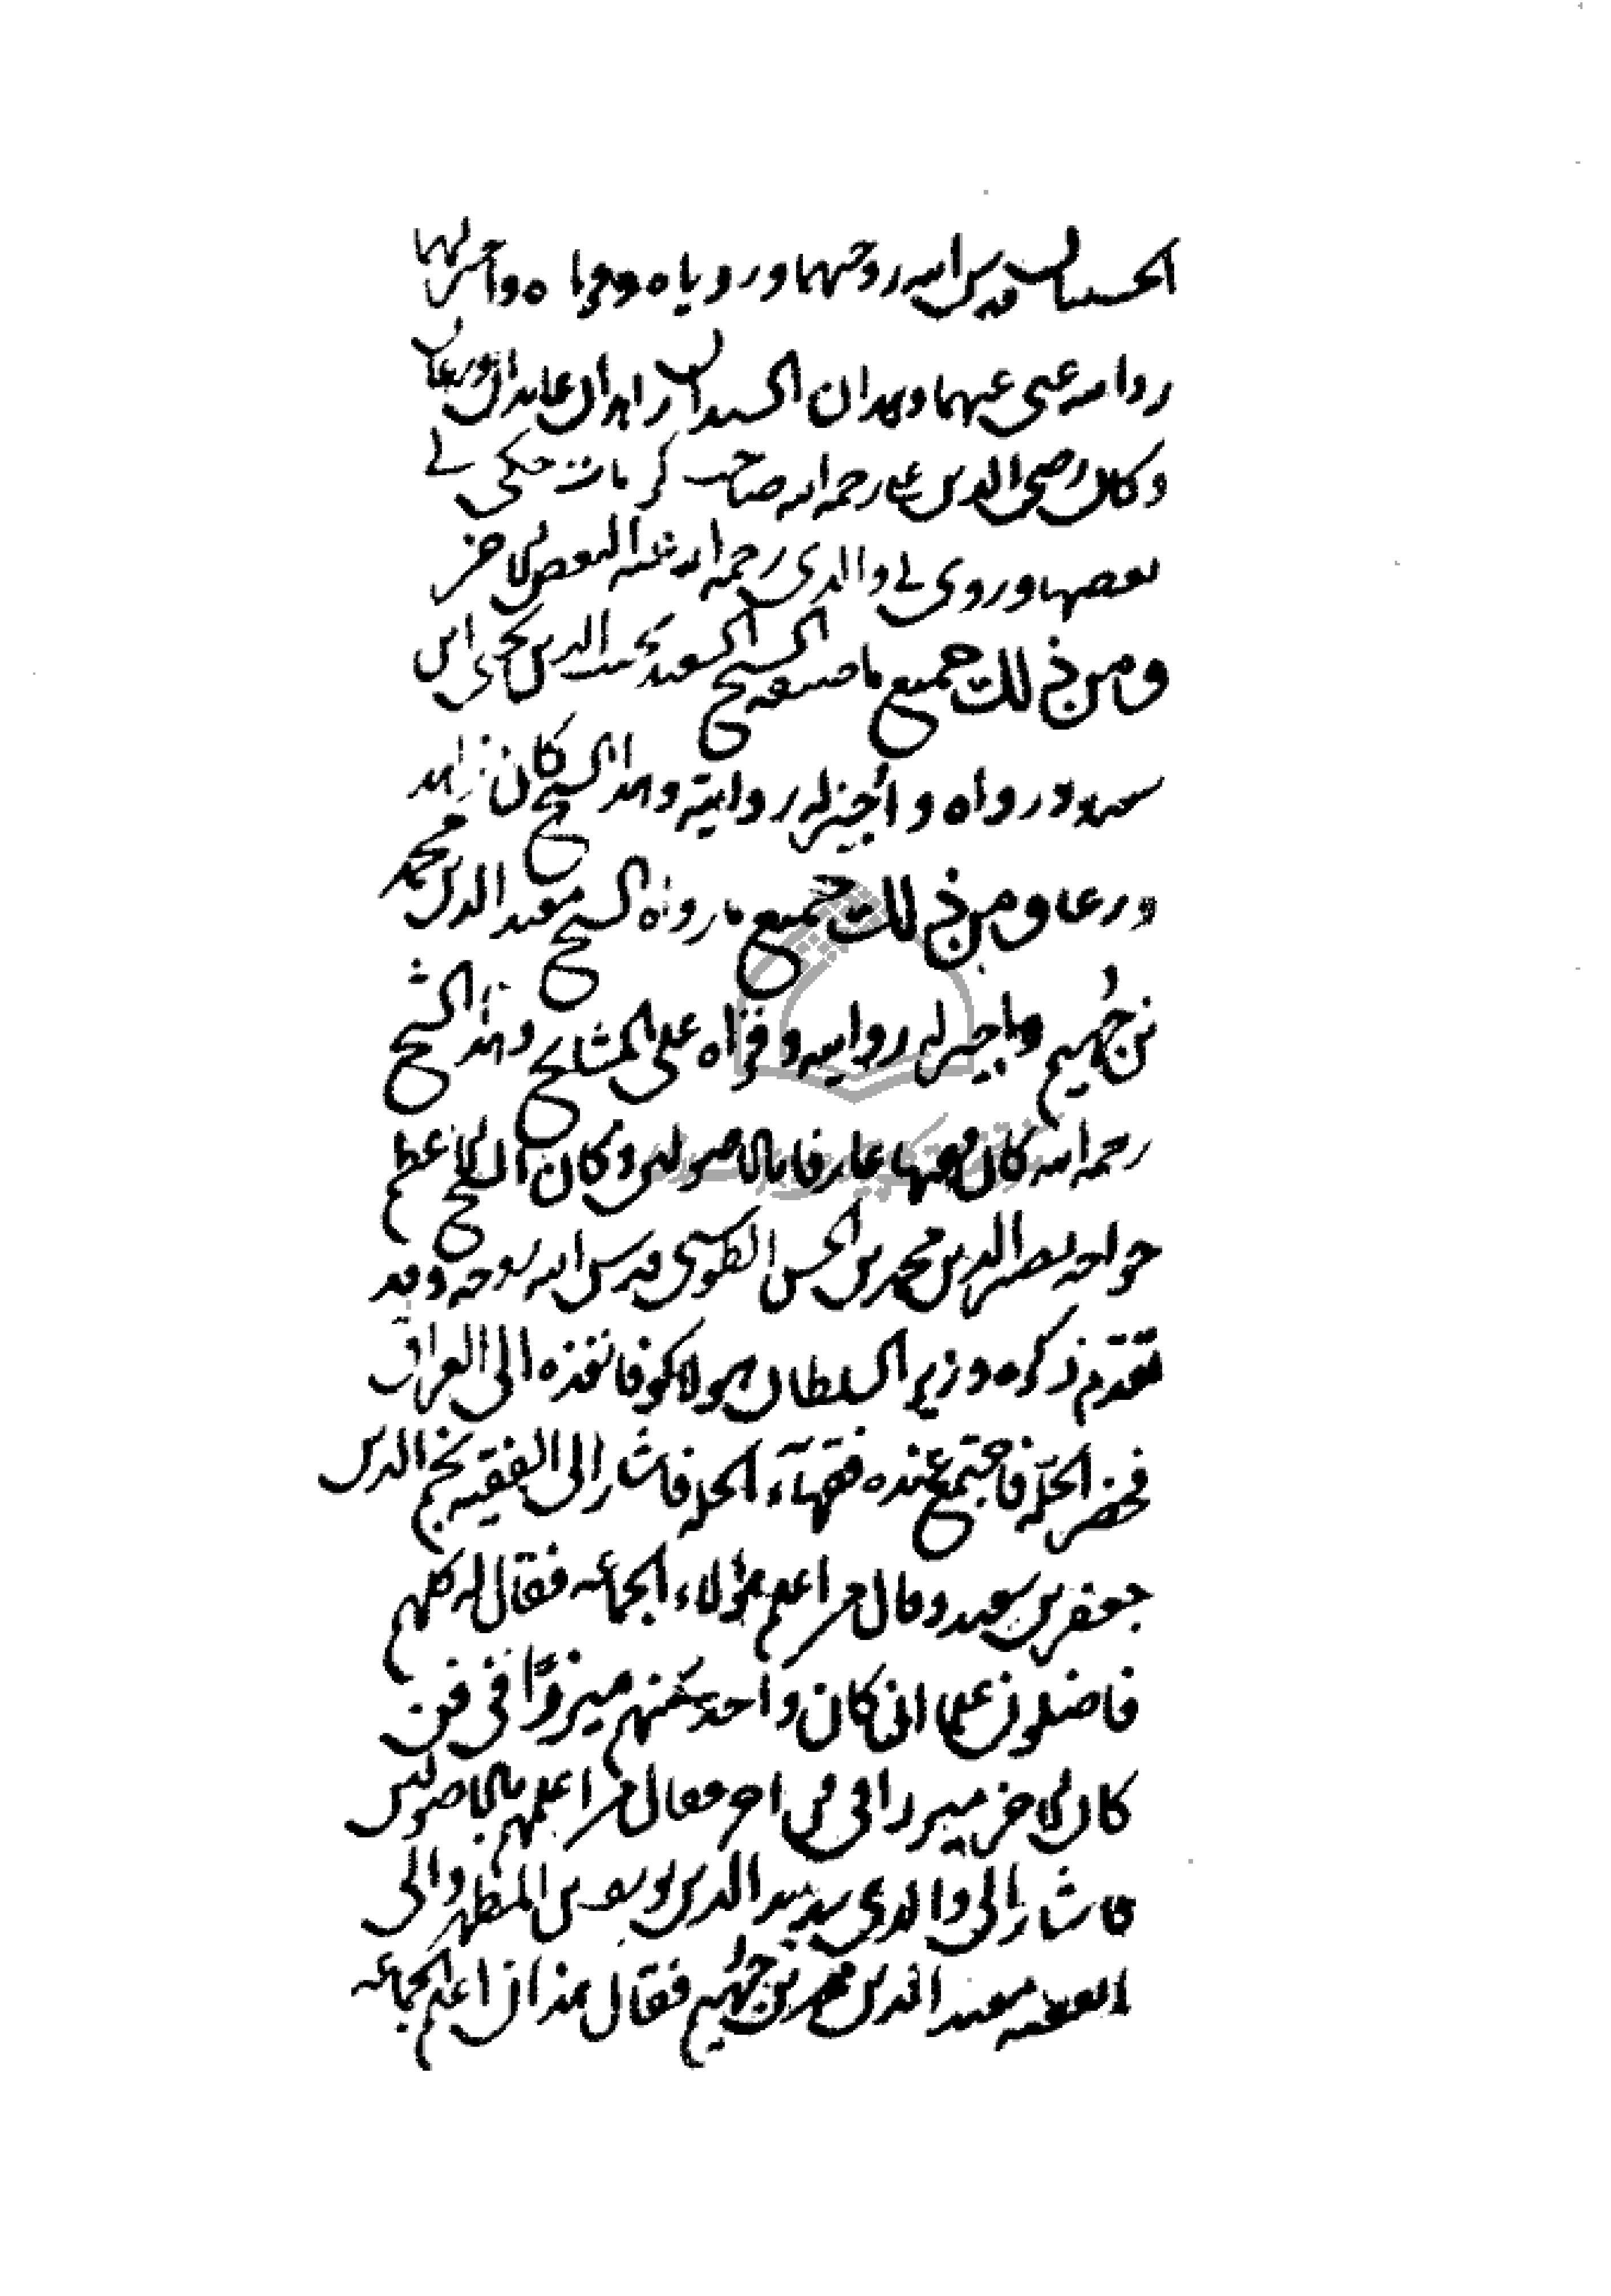 الحسنيان قدس الله روحهما ورويا‌ه وقرا‌ه واجيز لهما
روايته عني عنهما وهذان السيدان زاهدان عابدان ورعان
وكان رضي الدين علي رحمه الله صاحب كرامات حكى لي
بعضها وروى لي والدي رحمه الله عنه البعض الاخر
ومن ذلك جميع ما صنفه الشيخ السعيد نجيب الدين يحيى ابن
سعيد ورواه وأجيز له روايته وهذا الشيخ كان زاهدا
ورعا ومن ذلك جميع ما رواه الشيخ مفيد الدين محمد
بن جُهيم وما اجيز له روايته وقراه على المشايخ وهذا الشيخ
رحمه الله كان فقيها عارفا بالاصولين وكان الشيخ الاعظم
خواجه نصير الدين محمد بن الحسن الطوسي قدس الله روحه وقد
تقدم ذكره وزير السلطان هولاكو فانفذه الى العراق
فحضر الحلّة فاجتمع عنده فقهآء الحلة فاشار الى الفقيه نجم الدين
جعفر بن سعيد وقال من اعلم هؤلاء الجماعة فقال له كلهم
فاضلون علماء ان كان واحد منهم مبرزًا في فن
كان الاخر مبرزا في فن اخر فقال من اعلمهم بالاصولين
فاشار الى والدي سديد الدين يوسف بن المطهر والى
الفقيه مفيد الدين محمد بن جُهيم فقال هذان اعلم الجماعة